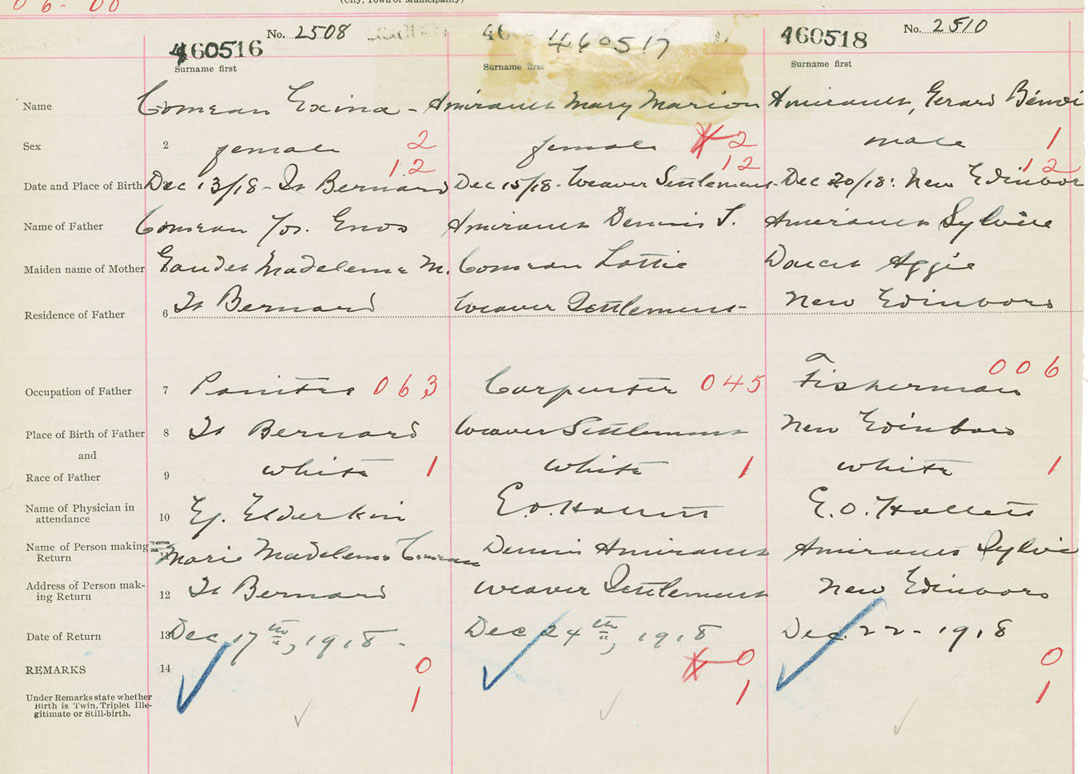 06-00
(City, Town or Municipality)
No. 2508
No. 2510
460516 460517 460518
Surname first Surname first Surname first
Name Comeau Exina - Amirault Mary Marion Amirault, Gerard Bénoi
Sex 2 female 2 female 2 male 1
12 12 12
Date and Place of Birth Dec 13/18 - St Bernard Dec 15/18 - Weaver Settlement. Dec 20/18: New Edinbor
Name of Father Comeau Jos. Enos Amirault Dennis J. Amirault Sylvie
Maiden name of Mother Gaudet Madeleine M. Comeau Lottie Doucet Aggie
Residence of Father 6 St Bernard Weaver Settlement - New Edinboro
Occupation of Father 7 Painter 063 Carpenter 045 Fisherman 006
Place of Birth of Father 8 St Bernard Weaver Settlement New Edinboro
and
Race of Father 9 white 1 white 1 white 1
Name of Physician in
attendance 10 Elderkin E.O. Hallett E.O. Hallett
Name of Person making
Return Marie Madeleine Comeau Dennis Amirault Amirault Sylvie
Address of Person mak-
ing Return 12 St Bernard Weaver Settlement New Edinboro
Date of Return 13 Dec 17th, 1918 - Dec 24th, 1918 Dec 22 - 1918
REMARKS 14 0 0 0
Under Remarks state whether
Birth is Twin, Triplet Ille-
gitimate or Still-birth. 1 1 1